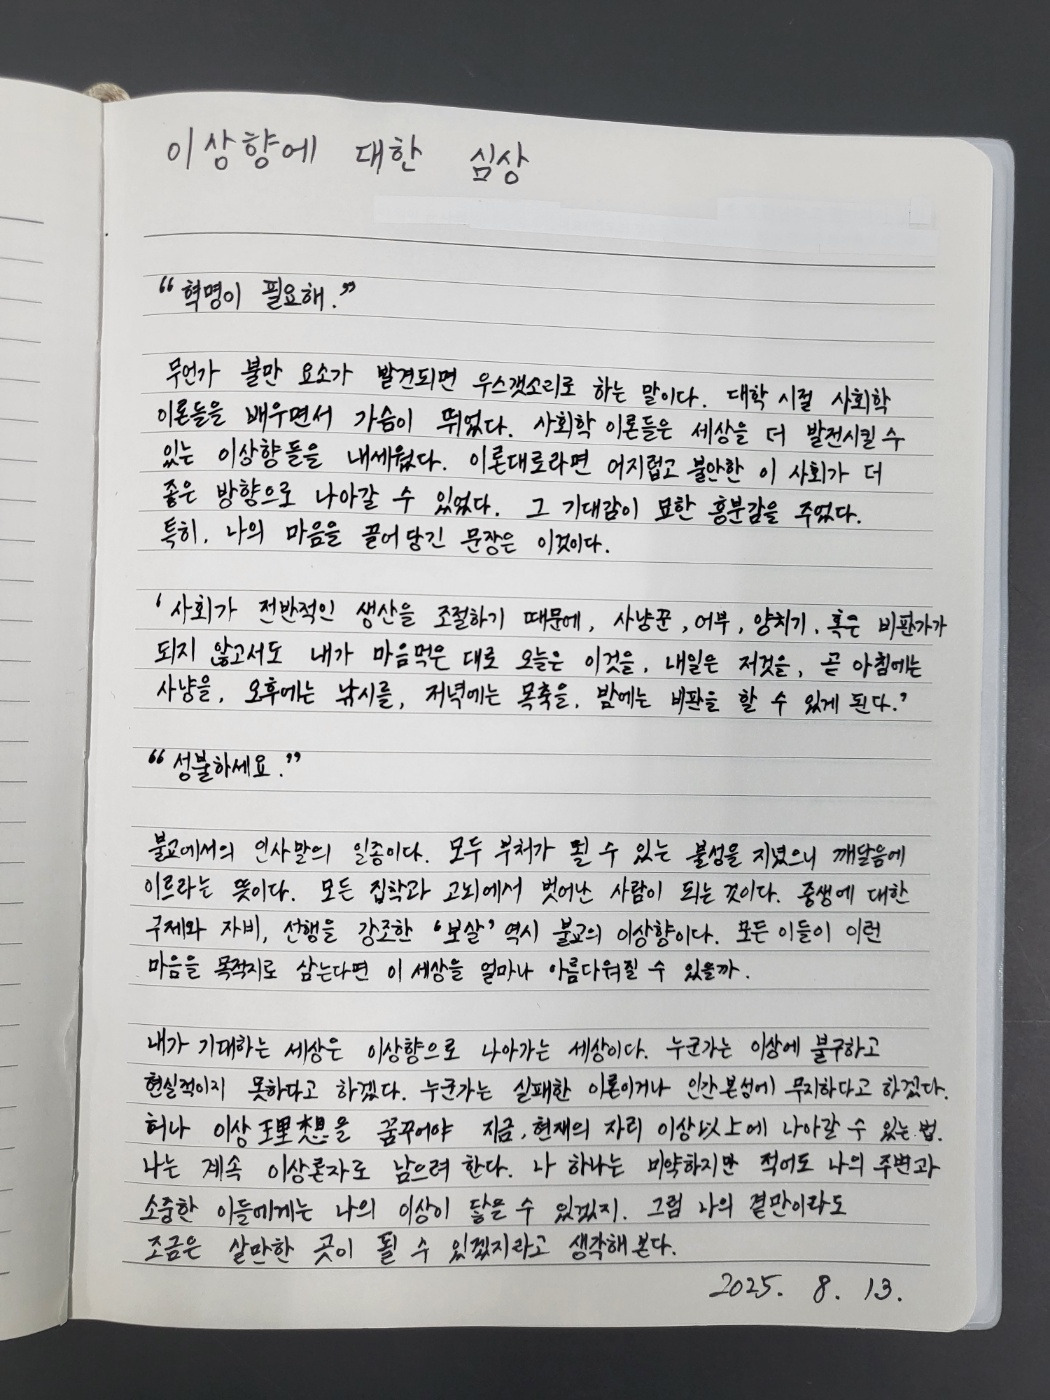 이상향에 대한 심상
“혁명이 필요해.”
무언가 불만 요소가 발견되면 우스갯소리로 하는 말이다. 대학 시절 사회학
이론들을 배우면서 가슴이 뛰었다. 사회학 이론들은 세상을 더 발전시킬 수
있는 이상향들을 내세웠다. 이론대로라면 어지럽고 불안한 이 사회가 더
좋은 방향으로 나아갈 수 있었다. 그 기대감이 묘한 흥분감을 주었다.
특히, 나의 마음을 끌어당긴 문장은 이것이다.
‘사회가 전반적인 생산을 조절하기 때문에, 사냥꾼, 어부, 양치기, 혹은 비판가가
되지 않고서도 내가 마음먹은 대로 오늘은 이것을, 내일은 저것을, 곧 아침에는
사냥을, 오후에는 낚시를, 저녁에는 목축을, 밤에는 비판을 할 수 있게 된다.’
“성불하세요.”
불교에서의 인사말의 일종이다. 모두 부처가 될 수 있는 불성을 지녔으니 깨달음에
이르라는 뜻이다. 모든 집착과 고뇌에서 벗어난 사람이 되는 것이다. 중생에 대한
구제와 자비, 선행을 강조한 ‘보살’ 역시 불교의 이상향이다. 모든 이들이 이런
마음을 목적지로 삼는다면 이 세상을 얼마나 아름다워질 수 있을까.
내가 기대하는 세상은 이상향으로 나아가는 세상이다. 누군가는 이상에 불구하고
현실적이지 못하다고 하겠다. 누군가는 실패한 이론이거나 인간본성에 무지하다고 하겠다.
허나 이상理想을 꿈꾸어야 지금, 현재의 자리 이상以上에 나아갈 수 있는 법.
나는 계속 이상론자로 남으려 한다. 나 하나는 미약하지만 적어도 나의 주변과
소중한 이들에게는 나의 이상이 닿을 수 있겠지. 그럼 나의 곁만이라도
조금은 살만한 곳이 될 수 있겠지라고 생각해 본다.
2025. 8. 13.